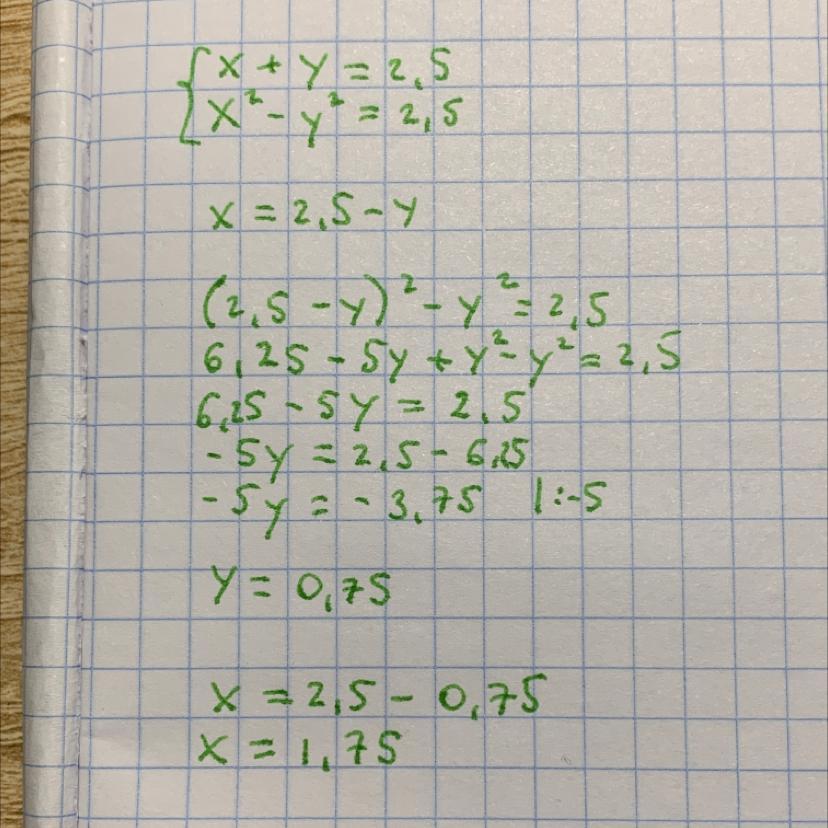 x + y = 2,5
x² - y² = 2,5
x = 2,5 - y
(2,5 - y)² - y² = 2,5
6,25 - 5y + y² - y² = 2,5
6,25 - 5y = 2,5
-5y = 2,5 - 6,25
-5y = -3,75 |:-5
y = 0,75
x = 2,5 - 0,75
x = 1,75